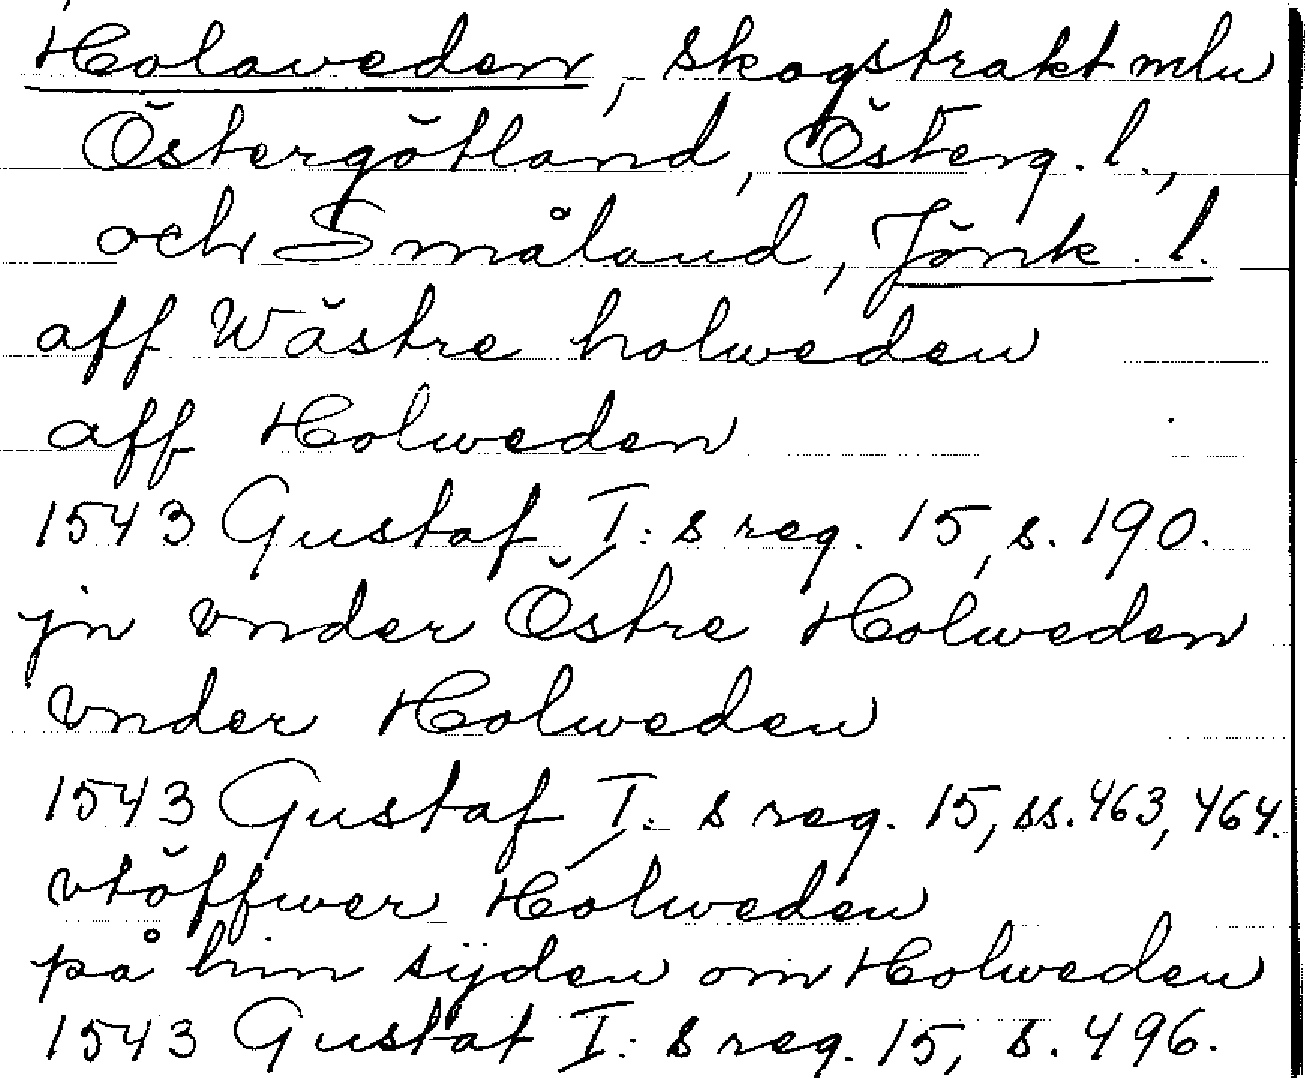 Holaveden, skogstrakt mln
Östergötland, Österg. l.,
och Småland, Jönk. l.
aff Wästre holweden
aff Holweden
1543 Gustaf I:s reg. 15, s. 190.
jn vnder Östre Holweden
vnder Holweden
1543 Gustaf I:s reg. 15, ss. 463, 464.
vtöffwer Holweden
på hin sijden om Holweden
1543 Gustaf I:s reg. 15, s. 496.